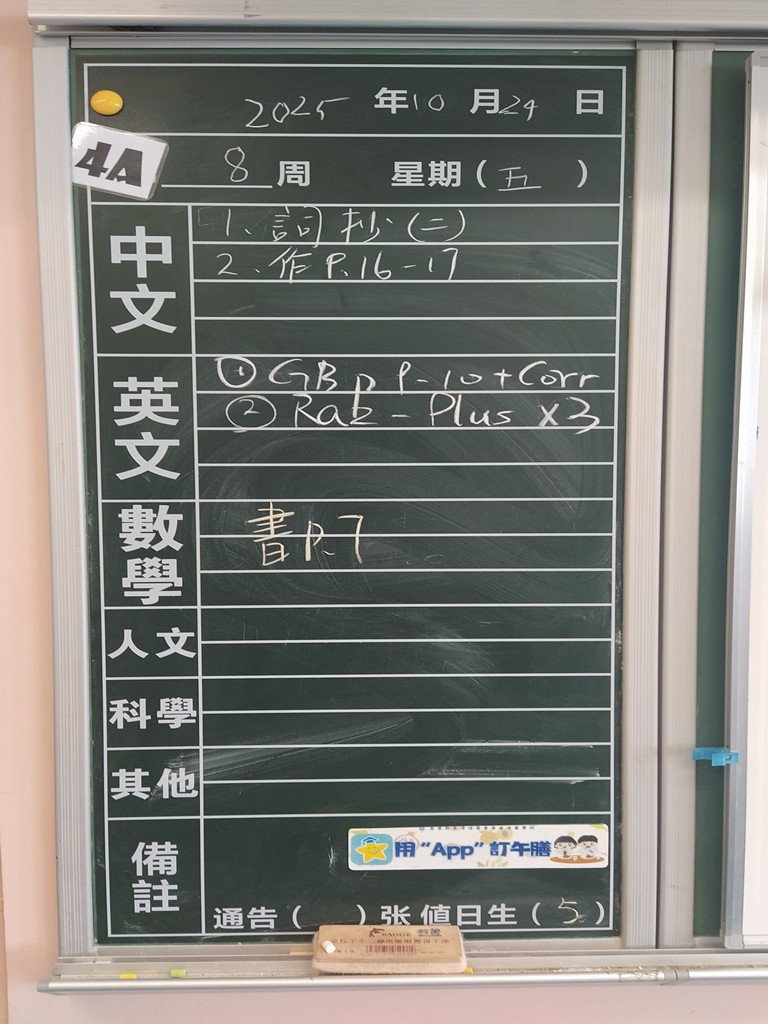 2025 年 10 月 24 日
4A
8 周 星期 ( 五 )
中文
1. 詞抄 (二)
2. 作 P.16-17
英文
① GB p 9-10 + Corr
② Raz-Plus x3
數學
書 P.7
人文
科學
其他
備註
用 "App" 訂午膳
通告 ( ) 张 值日生 ( 5 )
BADGE